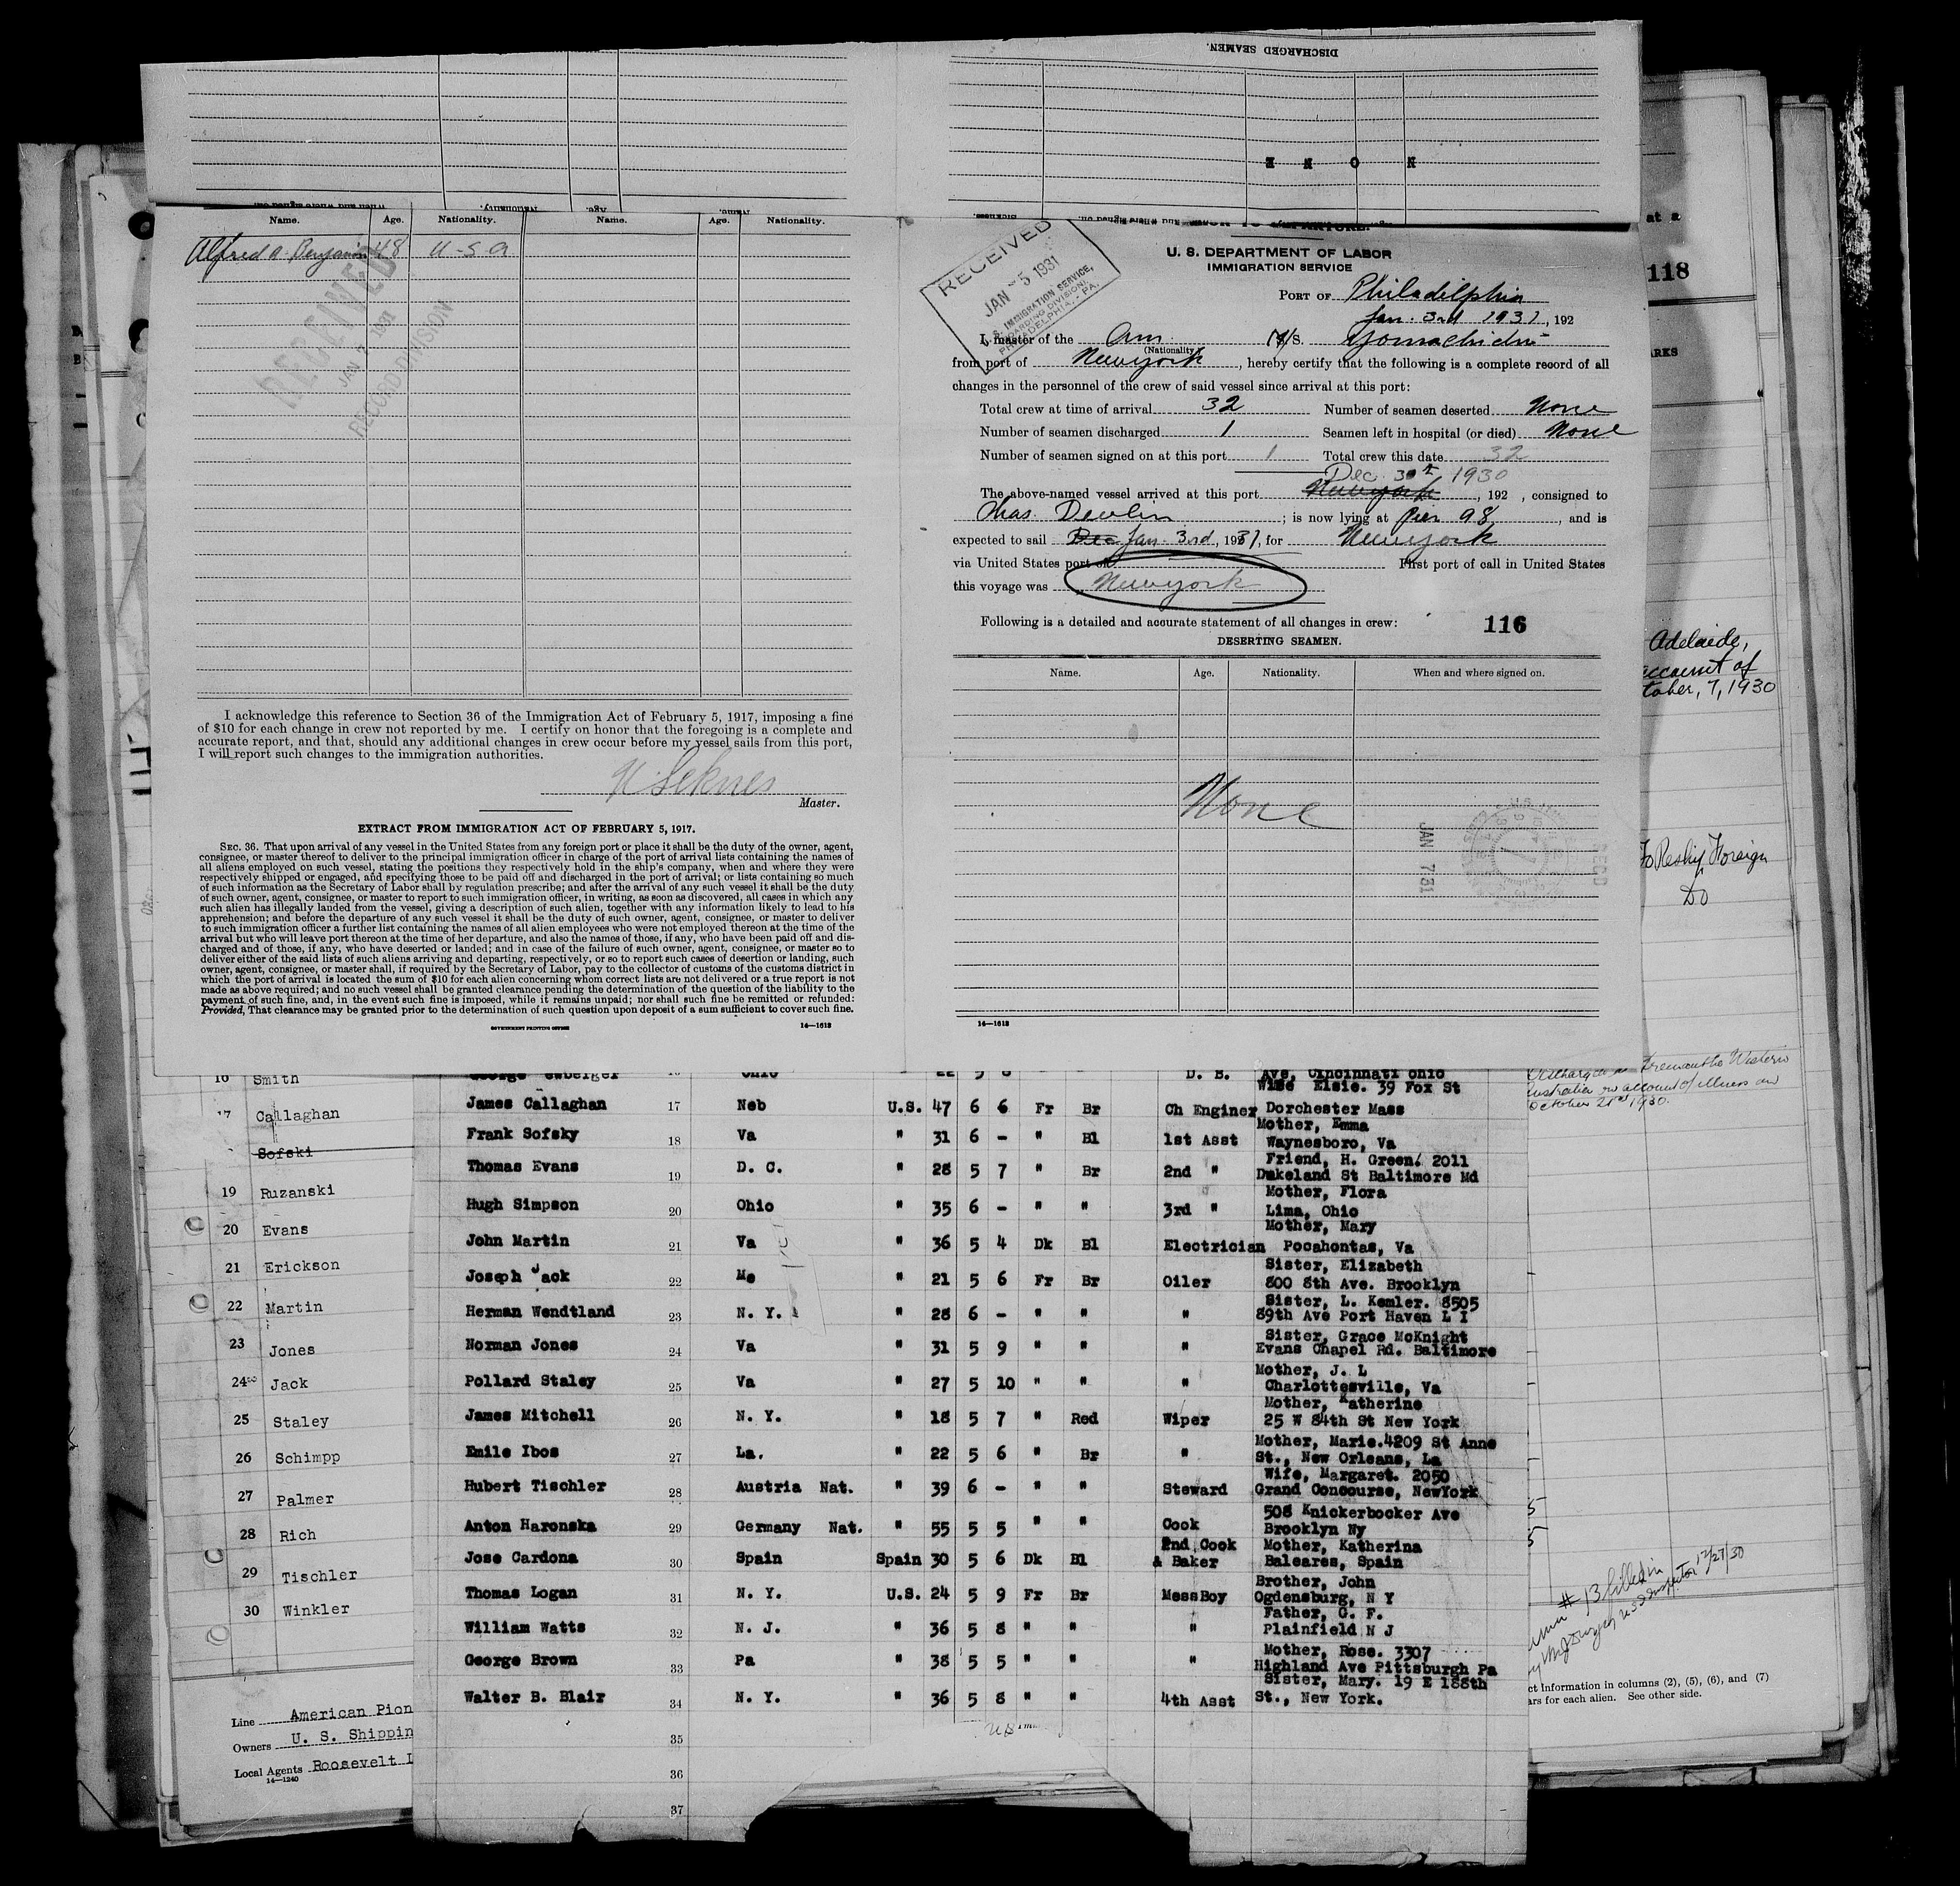 DISCHARGED SEAMEN.
N O N E
Name. Age. Nationality. Name. Age. Nationality.
Alfred A. Benjamin 48 U-S-A
RECEIVED
JAN 7 1931
RECORD DIVISION
I acknowledge this reference to Section 36 of the Immigration Act of February 5, 1917, imposing a fine
of $10 for each change in crew not reported by me. I certify on honor that the foregoing is a complete and
accurate report, and that, should any additional changes in crew occur before my vessel sails from this port,
I will report such changes to the immigration authorities.
Master.
EXTRACT FROM IMMIGRATION ACT OF FEBRUARY 5, 1917.
SEC. 36. That upon arrival of any vessel in the United States from any foreign port or place it shall be the duty of the owner, agent,
consignee, or master thereof to deliver to the principal immigration officer in charge of the port of arrival lists containing the names of
all aliens employed on such vessel, stating the positions they respectively hold in the ship's company, when and where they were
respectively shipped or engaged, and specifying those to be paid off and discharged in the port of arrival; or lists containing so much
of such information as the Secretary of Labor shall by regulation prescribe; and after the arrival of any such vessel it shall be the duty
of such owner, agent, consignee, or master to report to such immigration officer, in writing, as soon as discovered, all cases in which any
such alien has illegally landed from the vessel, giving a description of such alien, together with any information likely to lead to his
apprehension; and before the departure of any such vessel it shall be the duty of such owner, agent, consignee, or master to deliver
to such immigration officer a further list containing the names of all alien employees who were not employed thereon at the time of the
arrival but who will leave port thereon at the time of her departure, and also the names of those, if any, who have been paid off and dis-
charged and of those, if any, who have deserted or landed; and in case of the failure of such owner, agent, consignee, or master so to
deliver either of the said lists of such aliens arriving and departing, respectively, or so to report such cases of desertion or landing, such
owner, agent, consignee, or master shall, if required by the Secretary of Labor, pay to the collector of customs of the customs district in
which the port of arrival is located the sum of $10 for each alien concerning whom correct lists are not delivered or a true report is not
made as above required; and no such vessel shall be granted clearance pending the determination of the question of the liability to the
payment of such fine, and, in the event such fine is imposed, while it remains unpaid; nor shall such fine be remitted or refunded:
Provided, That clearance may be granted prior to the determination of such question upon deposit of a sum sufficient to cover such fine.
GOVERNMENT PRINTING OFFICE 14—1613
RECEIVED
JAN -5 1931
U. S. IMMIGRATION SERVICE,
(BOARDING DIVISION)
PHILADELPHIA, - PA.
U. S. DEPARTMENT OF LABOR
IMMIGRATION SERVICE
PORT OF Philadelphia
Jan. 3rd 1931, 192
I, master of the Am. (Nationality) M/S. Yomachichi
from port of Newyork, hereby certify that the following is a complete record of all
changes in the personnel of the crew of said vessel since arrival at this port:
Total crew at time of arrival 32 Number of seamen deserted None
Number of seamen discharged 1 Seamen left in hospital (or died) None
Number of seamen signed on at this port 1 Total crew this date 32
Dec. 30th 1930
The above-named vessel arrived at this port Newyork, 192 , consigned to
Chas. Devlin; is now lying at Pier 98, and is
expected to sail Dec Jan. 3rd, 1931, for Newyork
via United States port of First port of call in United States
this voyage was Newyork
Following is a detailed and accurate statement of all changes in crew: 116
DESERTING SEAMEN.
Name. Age. Nationality. When and where signed on.
None
JAN 7 31
RECD
14—1613
118
ARKS
Adelaide,
account of
tober, 7, 1930
To Reship Foreign
Do
Fremantle Western
Australia on account of illness on
October 21st 1930.
16 Smith
17 Callaghan
Sofski
19 Ruzanski
20 Evans
21 Erickson
22 Martin
23 Jones
24 Jack
25 Staley
26 Schimpp
27 Palmer
28 Rich
29 Tischler
30 Winkler
Line American Pion
Owners U. S. Shippin
Local Agents Roosevelt L
14—1240
Ohio 22 5 8 D. B. Ave, Cincinnati Ohio
Wife Elsie. 39 Fox St
James Callaghan 17 Neb U.S. 47 6 6 Fr Br Ch Enginer Dorchester Mass
Mother, Emma
Frank Sofsky 18 Va " 31 6 - " Bl 1st Asst Waynesboro, Va
Friend, H. Green. 2011
Thomas Evans 19 D. C. " 28 5 7 " Br 2nd " Dukeland St Baltimore Md
Mother, Flora
Hugh Simpson 20 Ohio " 35 6 - " " 3rd " Lima, Ohio
Mother, Mary
John Martin 21 Va " 36 5 4 Dk Bl Electrician Pocahontas, Va
Sister, Elizabeth
Joseph Jack 22 Me " 21 5 6 Fr Br Oiler 800 8th Ave. Brooklyn
Sister, L. Kemler. 8505
Herman Wendtland 23 N. Y. " 28 6 - " " " 89th Ave Port Haven L I
Sister, Grace McKnight
Norman Jones 24 Va " 31 5 9 " " " Evans Chapel Rd. Baltimore
Mother, J. L
Pollard Staley 25 Va " 27 5 10 " " " Charlottesville, Va
Mother, Katherine
James Mitchell 26 N. Y. " 18 5 7 " Red Wiper 25 W 84th St New York
Mother, Marie. 4209 St Anne
Emile Ibos 27 La. " 22 5 6 " Br " St., New Orleans, La
Wife, Margaret. 2050
Hubert Tischler 28 Austria Nat. " 39 6 - " " Steward Grand Concourse, NewYork
508 Knickerbocker Ave
Anton Haronska 29 Germany Nat. " 55 5 5 " " Cook Brooklyn Ny
2nd Cook Mother, Katherina
Jose Cardona 30 Spain Spain 30 5 6 Dk Bl & Baker Baleares, Spain
Brother, John
Thomas Logan 31 N. Y. U.S. 24 5 9 Fr Br MessBoy Ogdensburg, N Y
Father, G. F.
William Watts 32 N. J. " 36 5 8 " " " Plainfield N J
Mother, Rose. 3307
George Brown 33 Pa " 38 5 5 " " " Highland Ave Pittsburgh Pa
Sister, Mary. 19 E 188th
Walter B. Blair 34 N. Y. " 36 5 8 " " 4th Asst St., New York.
35
36
37
# 13 filled in
US Inspector 12/27/30
ct Information in columns (2), (5), (6), and (7)
ars for each alien. See other side.